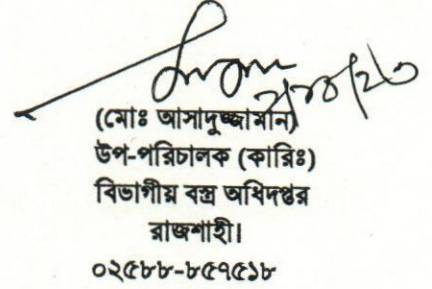 (মোঃ আসাদুজ্জামান)
উপ-পরিচালক (কারিঃ)
বিভাগীয় বস্ত্র অধিদপ্তর
রাজশাহী।
০২৫৮৮-৮৫৭৫১৮